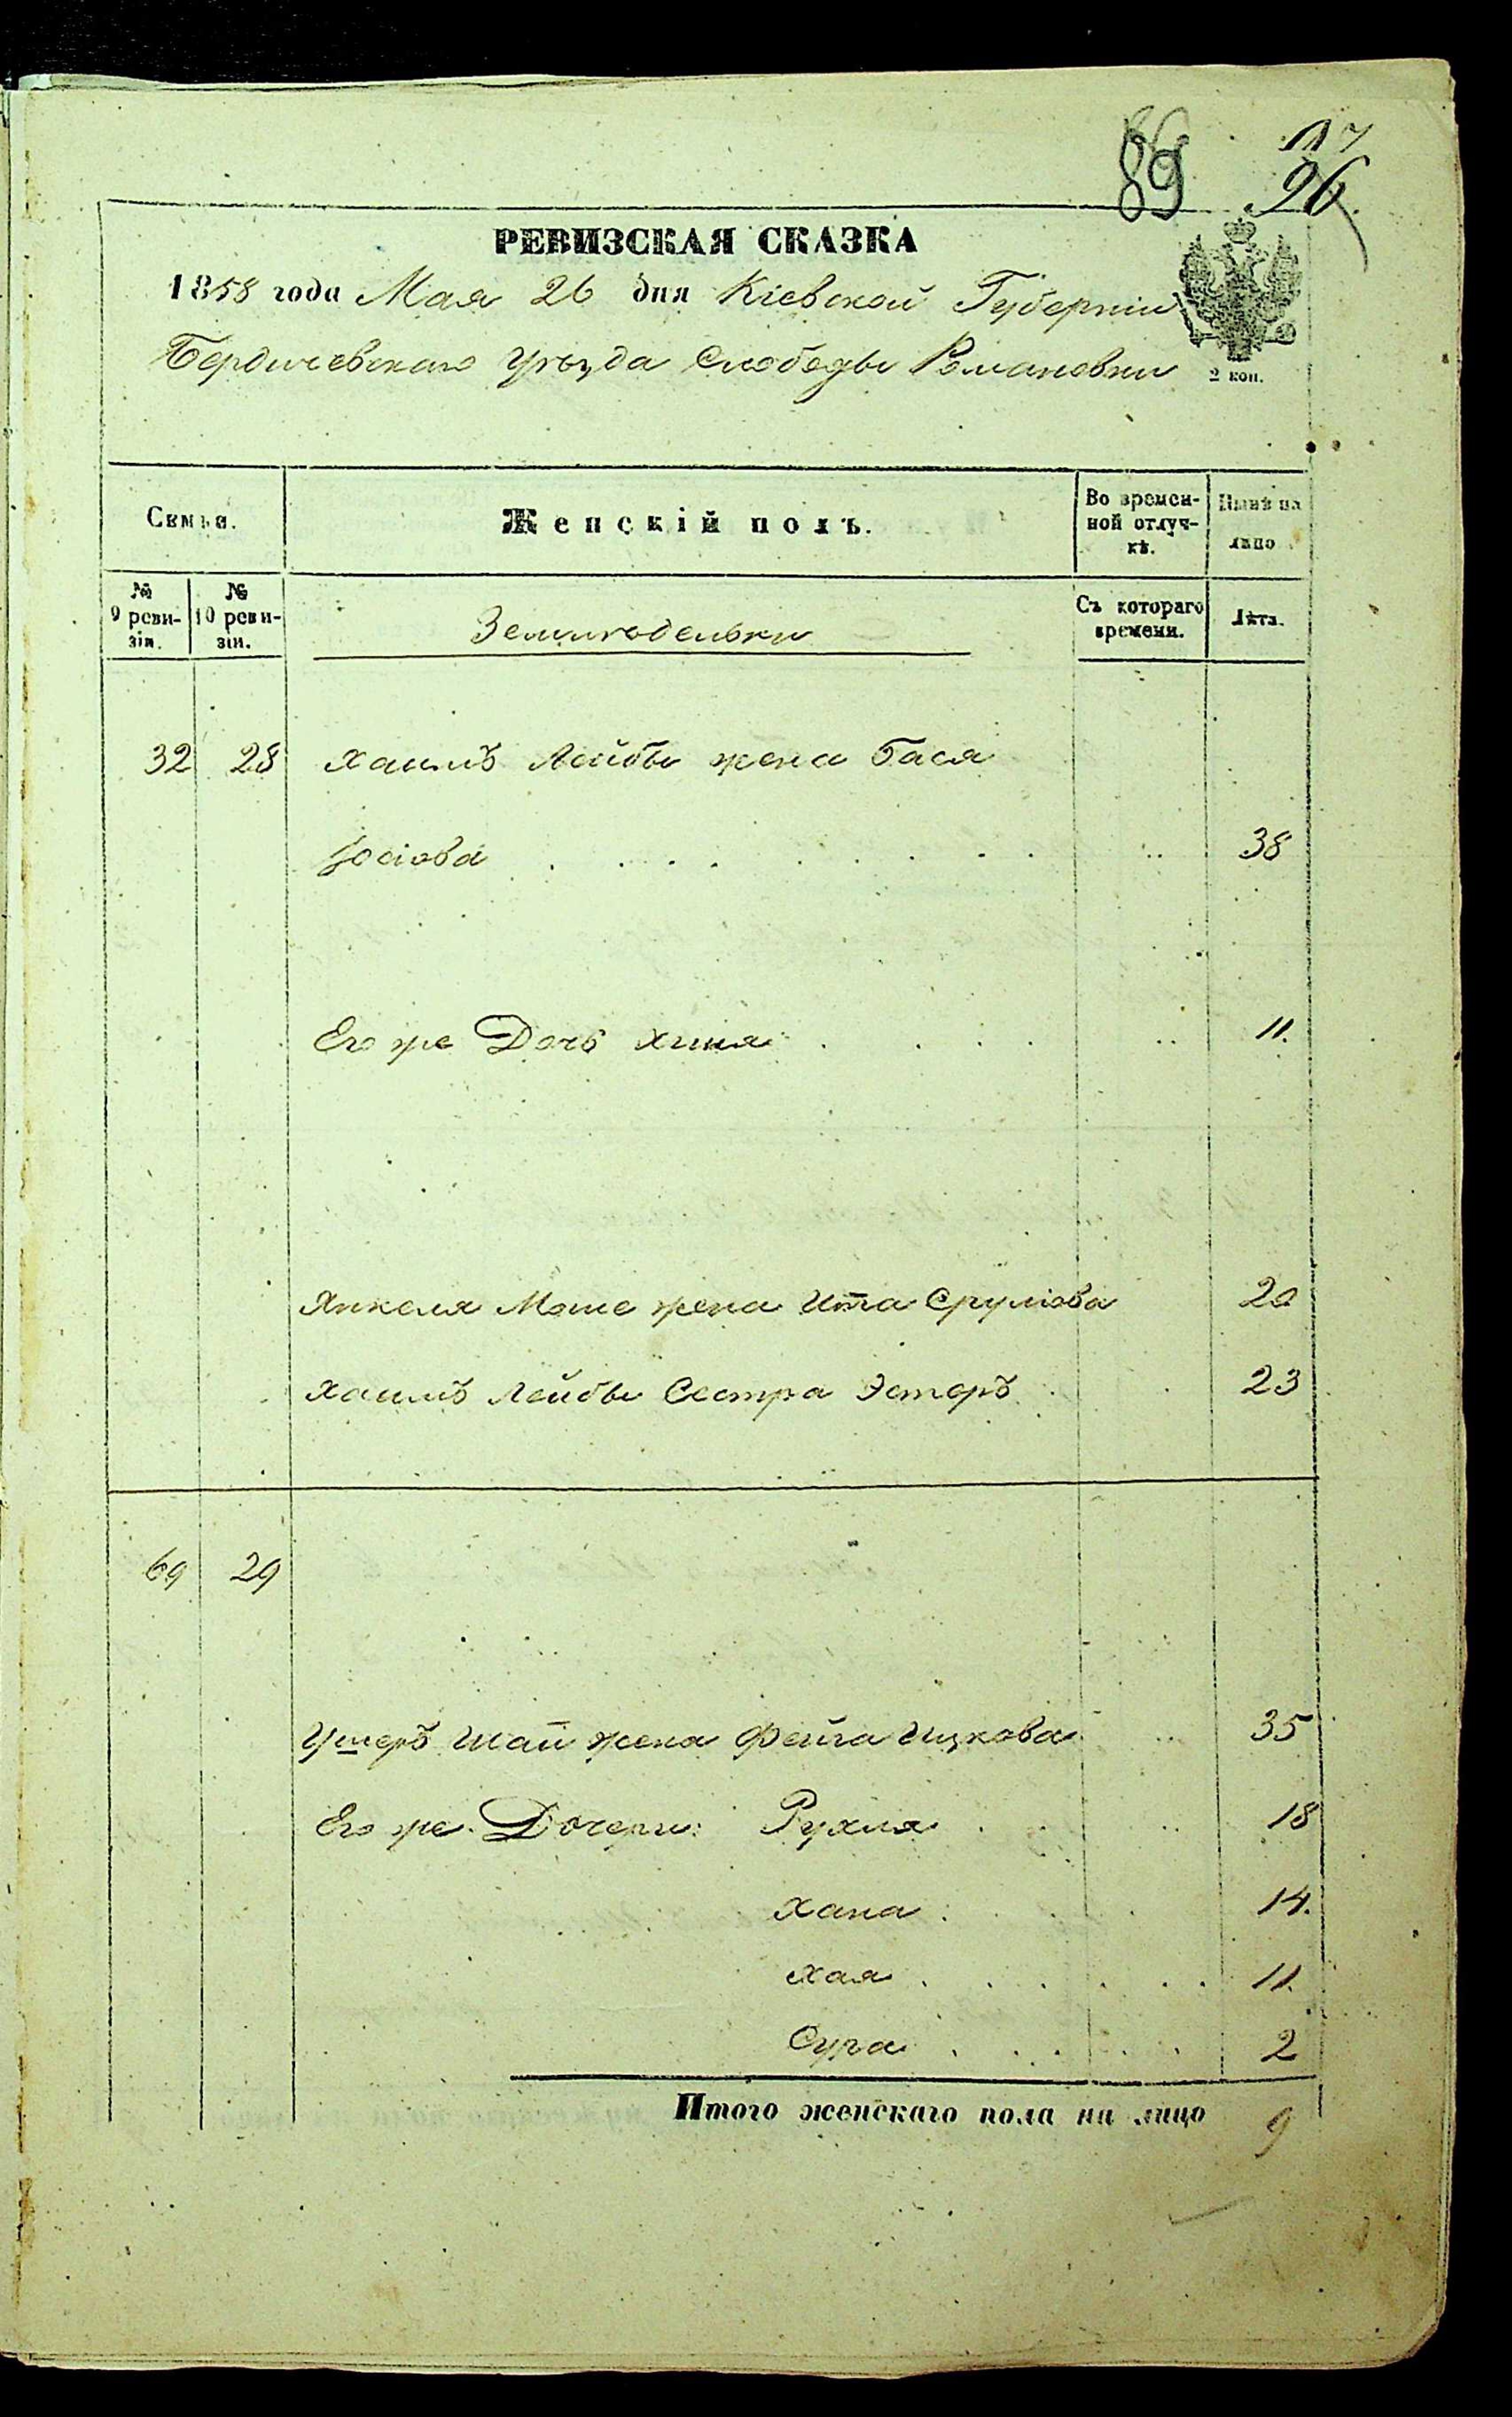 89 117
96
РЕВИЗСКАЯ СКАЗКА
1858 года Мая 26 дня Кіевской Губерніи
Бердичевскаго Уѣзда Слободы Романовки
2 коп.
Семья.
Женскій полъ.
Во времен-
ной отлуч-
кѣ.
Нынѣ на
лицо
№
9 реви-
зіи.
№
10 реви-
зіи.
Земл
Съ котораго
времени.
Лѣта.
32 28 Хаимъ Лейбы жена Бася
Iосіова 38
Его же Дочь Хиня 11.
Янкеля Моше жена Ита Срулiова 20
Хаимъ Лейбы Сестра Эстеръ 23
69 29
Ушеръ Шаи жена Фейга Ицкова 35
Его же Дочери: Рухля 18
Хана 14.
Хая 11.
Сура 2
Итого женскаго пола на лицо 9